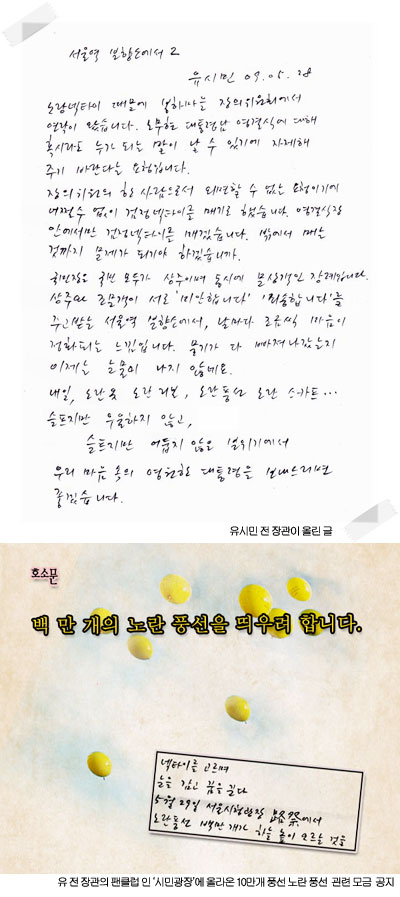 서울역 분향소에서 2
유시민 09.05.28
노랑넥타이 때문에 말하나는 장의위원회에서
연락이 왔습니다. 노무현 대통령님 영결식에 대해
혹시라도 누가 되는 말이 날 수 있기에 자제해
주기 바란다는 요청입니다.
장의위원의 한 사람으로서 외면할 수 없는 요청이기에
어쩔 수 없이 검정넥타이를 매기로 했습니다. 영결식장
안에서만 검정넥타이를 매겠습니다. 밖에서 매는
것까지 문제가 되기야 하겠습니까.
국민장은 국민 모두가 상주이며 동시에 문상객인 장례입니다.
상주와 조문객이 서로 '미안합니다' '죄송합니다'를
주고받는 서울역 분향소에서, 날마다 조금씩 마음이
정화되는 느낌입니다. 물기가 다 빠져나갔는지
이제는 눈물이 나지 않네요.
내일, 노란 옷 노란 리본, 노란풍선 노란 스카프…
슬프지만 우울하지 않고,
슬프지만 어둡지 않은 분위기에서
우리 마음 속의 영원한 대통령을 보내드리면
좋겠습니다.
유시민 전 장관이 올린 글
호소문
백 만 개의 노란 풍선을 띄우려 합니다.
넥타이를 고르며
눈을 감고 꿈을 꾼다
5월 29일 서울시청광장 路祭에서
노란풍선 백만개가 하늘 높이 오르는 것을
유 전 장관의 팬클럽 인 '시민광장'에 올라온 10만개 풍선 노란 풍선 관련 모금 공지